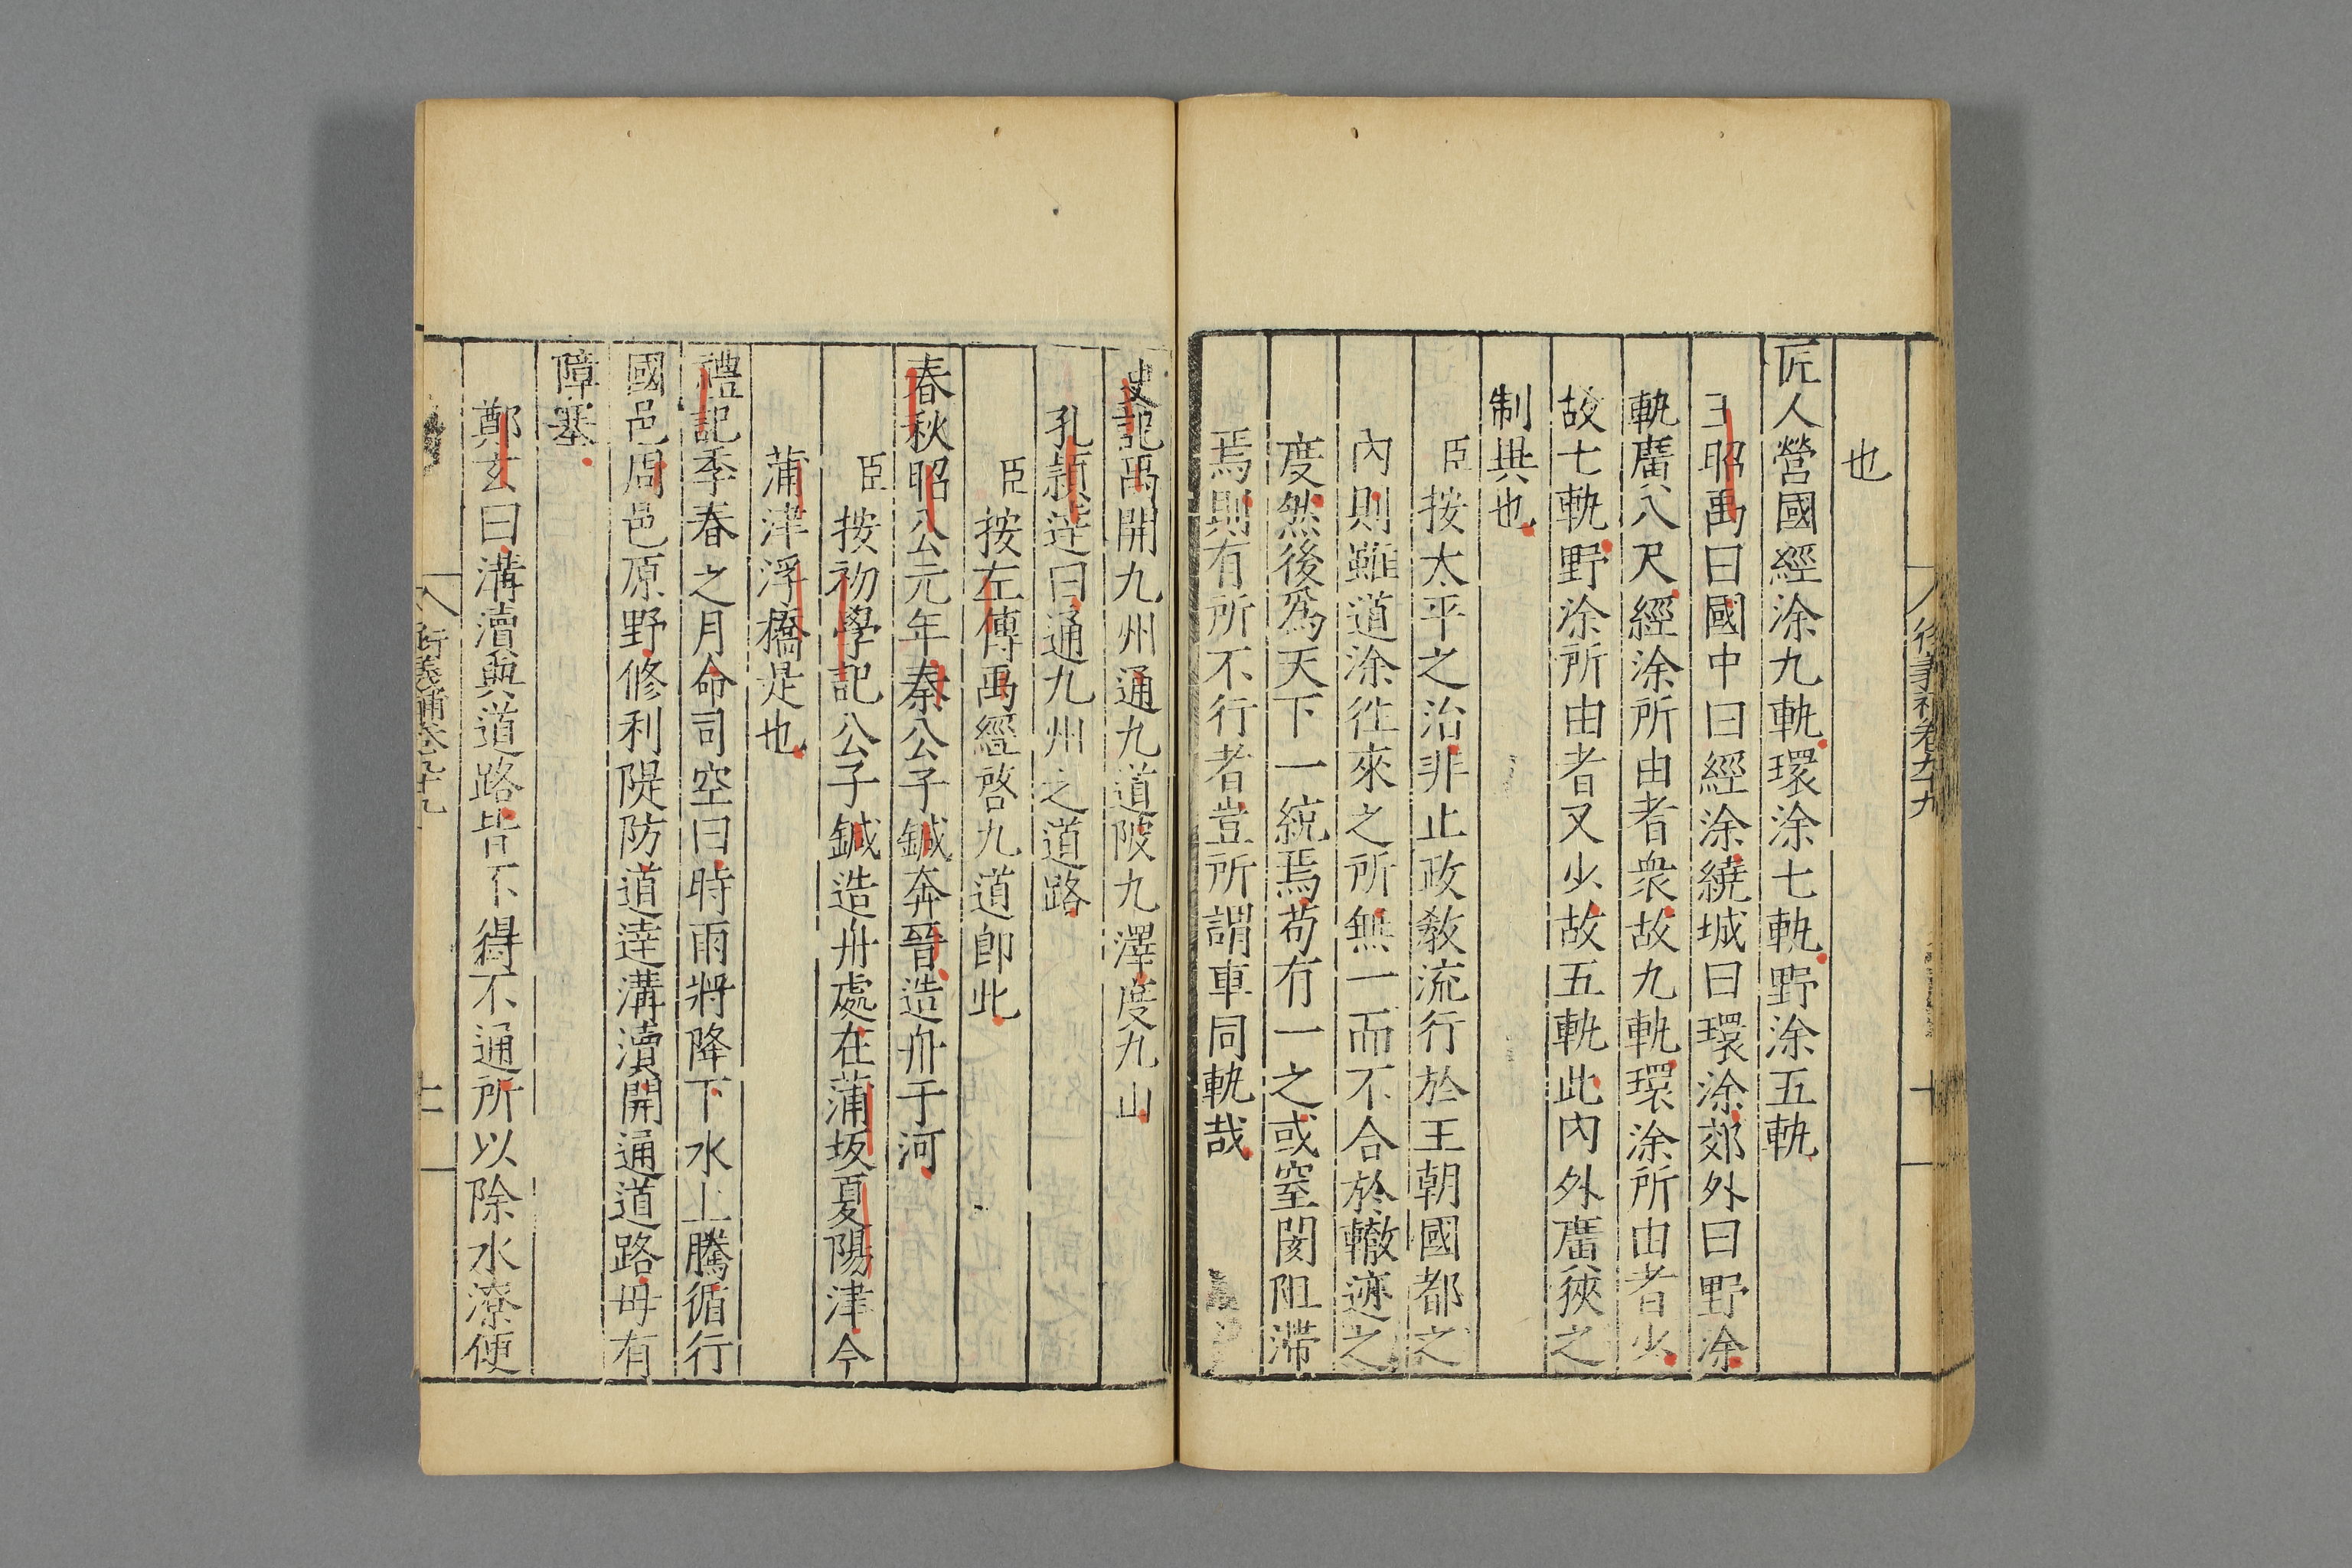 也
匠人營國經涂九軌環涂七軌野涂五軌
王昭禹曰國中曰經涂繞城曰環涂郊外曰野涂
軌廣八尺經涂所由者衆故九軌環涂所由者少
故七軌野涂所由者又少故五軌此內外廣狹之
制與也
臣按太平之治非止政敎流行於王朝國都之
內則雖道涂徃來之所無一而不合於轍迹之
度然後爲天下一統焉苟有一之或窒閡阻滯
焉則有所不行者豈所謂車同軌哉
史記禹開九州通九道陂九澤度九山
孔頴逹曰通九州之道路
臣按左傳禹經啓九道卽此
春秋昭公元年秦公子鍼奔晉造舟于河
臣按初學記公子鍼造舟處在蒲坂夏陽津今
蒲津浮橋是也
禮記季春之月命司空曰時雨將降下水上騰循行
國邑周邑原野修利隄防道逹溝瀆開通道路毋有
障塞
鄭玄曰溝瀆與道路皆不得不通所以除水潦便
衍義補卷九十九